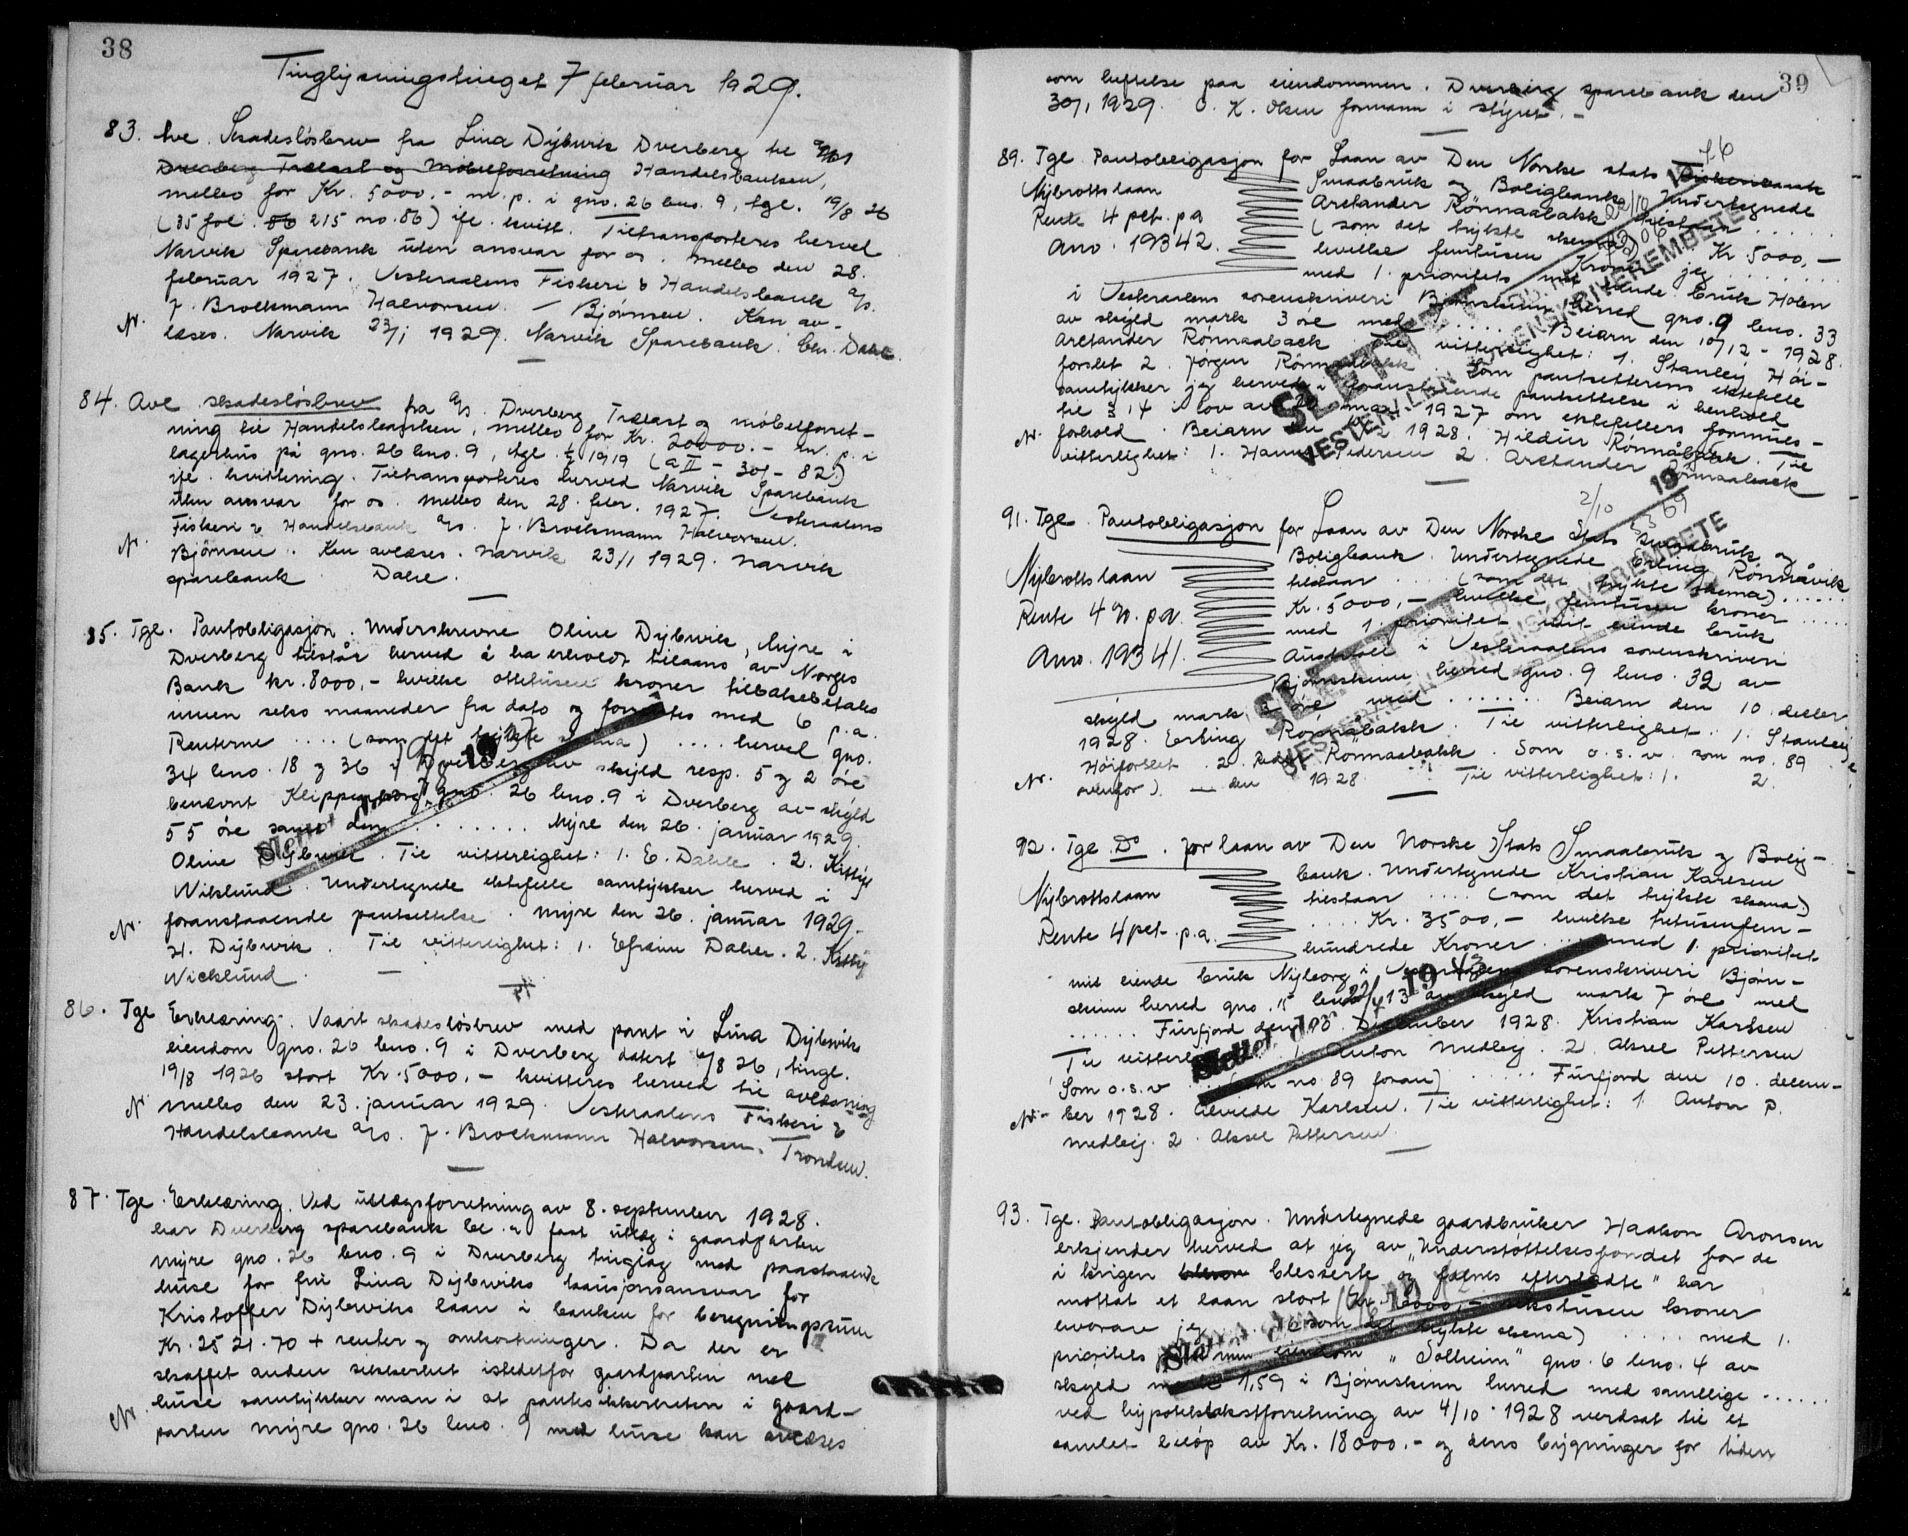 38
Tinglysningstinget 7 februar 1929.
83. Ave Skadesløsbrev fra Lina Dybwik Dverberg til
Dverberg Trælast og Møbelforretning Handelsbanken,
melbo for Kr. 5000.- m. p. i gno. 26 bno. 9, tgl. 19/8 26
(35 fol. 215 no. 86) ifl. kvitt. Tiltransporteres herved
Narvik Sparebank uten ansvar for os. Melbo den 28.
februar 1927. Vesteraalens Fiskeri & Handelsbank A/S.
J. Brockmann Halvorsen. / Bjørnsen. Kan av-
N. læses. Narvik 23/1 1929. Narvik Sparebank. Chr. Dahl.
84. Ave skadesløsbrev fra A/S. Dverberg Trælast og møbelforret-
ning til Handelsbanken, melbo for Kr. 20000.- m. p. i
lagerhus på gno. 26 bno. 9, tgl. 1919 (a II - 301 - 82)
ifl. kvittering. Tiltransporteres herved Narvik Sparebank
uten ansvar for os. Melbo den 28. febr. 1927. Vesteraalens
Fiskeri & Handelsbank A/S. J. Brockmann Halvorsen.
N. Bjørnsen. Kan avlæses. Narvik 23/1 1929. Narvik
sparebank. Dahl.
85. Tgl. Pantobligasjon. Underskrevne Oline Dybwik, Myre i
Dverberg tilstår herved å ha erholdt tillaans av Norges
Bank kr. 8000,- hvilke ottetusen kroner tilbakebetales
innen seks maaneder fra dato og forrentes med 6 p.a.
Renterne .... (som det trykte skema) .... herved gno.
34 bno. 18 og 36 i Dverberg av skyld resp. 5 og 2 øre
benævnt Klippenborg, gno. 26 bno. 9 i Dverberg av skyld
55 øre samt den ........ Myre den 26. januar 1929.
Oline Dybwik. Til vitterlighet: 1. E. Dahle. 2. Kitty
Wiklund. Undertegnede ektefelle samtykker herved i
N. foranstaaende pantsettelse. Myre den 26. januar 1929.
H. Dybwik. Til vitterlighet: 1. Efraim Dahle. 2. Kitty
Wicklund.
Slettet den 19
86. Tgl Erklæring. Vaart skadesløsbrev med pant i Lina Dybwiks
eiendom gno. 26 bno. 9 i Dverberg datert 6/8 26, tingl.
19/8 1926 stort Kr. 5000,- kvitteres herved til avlæsning
N. Melbo den 23. januar 1929. Vesteraalens Fiskeri &
Handelsbank A/S. J. Brockmann Halvorsen. Trondsen.
87. Tgl. Erklæring. Ved utlægsforretning av 8. september 1928.
har Dverberg sparebank bl. a. faat utlæg i gaardparten
myre gno. 26 bno. 9 i Dverberg tinglag med paastaaende
huse for fru Lina Dybwiks kausjonsansvar for
Kristoffer Dybwiks laan i banken for beregningssum
Kr. 2521.70 + renter og omkostninger. Da der er
skaffet anden sikkerhet istedetfor gaardparten med
huse samtykker man i at pantesikkerheten i gaard-
N. parten myre gno. 26 bno. 9 med huse kan avlæses
39
som heftelse paa eiendommen. Dverberg sparebank den
30/1 1929. O. K. Olsen formann i styret. -
89. Tgl. Pantobligasjon for Laan av Den Norske stats Fiskeribank
Smaabruk og Boligbank. Undertegnede
Nybrottslaan Arelander Rønnaabakk tilstaar
Rente 4 pct. p.a (som det trykte skema) .....
Anv. 19342. hvilke femtusen Kroner Kr. 5000,-
jeg ........
med 1. prioritets mit eiende bruk Holen
i Vesteraalens sorenskriveri Bjørnskinn herred gno. 9 bno. 33
av skyld mark 3 øre med ..... Beiarn den 10/12 - 1928.
Arelander Rønnaaback. Til vitterlighet: 1. Stanley Høi-
forslet 2. Jørgen Rønnaabakk. Som pantsetterens ektefelle
samtykker jeg herved i foranstaaende pantsettelse i henhold
til § 14 i lov av 20 mai 1927 om ektefellers formues-
N. forhold. Beiarn den 1928. Hildur Rønnåbakk. Til
vitterlighet: 1. Hans Pedersen 2. Arelander Rønnaaback
SLETTET 22/10 19
VESTERÅLEN SORENSKRIVEREMBETE
91. Tgl. Pantobligasjon for Laan av Den Norske Stats Smaabruk og
Boligbank. Undertegnede Erling Rønnåvik
Nybrottslaan tilstaar .... (som det trykte skema) ......
Rente 4 %. p.a. Kr. 5000,- hvilke femtusen kroner .....
med 1. prioritet mit eiende bruk
Anv. 19341. i Vesteraalens sorenskriveri
Bjørnskinn herred gno. 9 bno. 32 av
skyld mark øre med ...... Beiarn den 10. decbr
1928. Erling Rønnåbakk. Til vitterlighet: 1. Stanley
Høiforslet. 2. Rønnaabakk. Som o. s. v. som no. 89
N. ovenfor). — den 1928. Til vitterlighet: 1. 2.
SLETTET 2/10 1969
VESTERÅLEN SORENSKRIVEREMBETE
92. Tgl. Do. for laan av Den Norske Stats Smaabruk og Bolig-
bank. Undertegnede Kristian Karlsen
Nybrottslaan tilstaar .... (som det trykte skema)
... Kr. 3500,- hvilke tretusenfem-
Rente 4 pct. p.a. hundrede Kroner ... med 1. prioritet
mit eiende bruk Nyborg i Vesteraalens sorenskriveri Bjørn-
skinn herred gno. 15 bno. 13 av skyld mark 7 øre med
...... Furfjord den 10. December 1928. Kristian Karlsen
Til vitterlighet: 1. Anton Medby. 2. Aksel Pettersen
Som o. s. v ... (som no. 89 foran) ..... Furfjord den 10. decem-
N. ber 1928. Karlsen. Til vitterlighet: 1. Anton P.
Medby. 2. Aksel Pettersen.
Slettet den 1943
93. Tgl. Pantobligasjon. Undertegnede gaardbruker Haakon Aronsen
erkjender herved at jeg av "Understøttelsesfondet for de
i krigen blesserte og falnes efterladte" har
mottat et laan stort Kr. 6000,- sekstusen kroner
hvorav jeg .... (som det trykte skema) ..... med 1.
prioritets min eiendom "Solheim" gno. 6 bno. 4 av
skyld mark 1,59 i Bjørnskinn herred med samtlige ......
ved hypotektakstforretning av 4/10 1928 verdsat til et
samlet beløp av Kr. 18000.- og dens bygninger for tiden
Slettet den 19